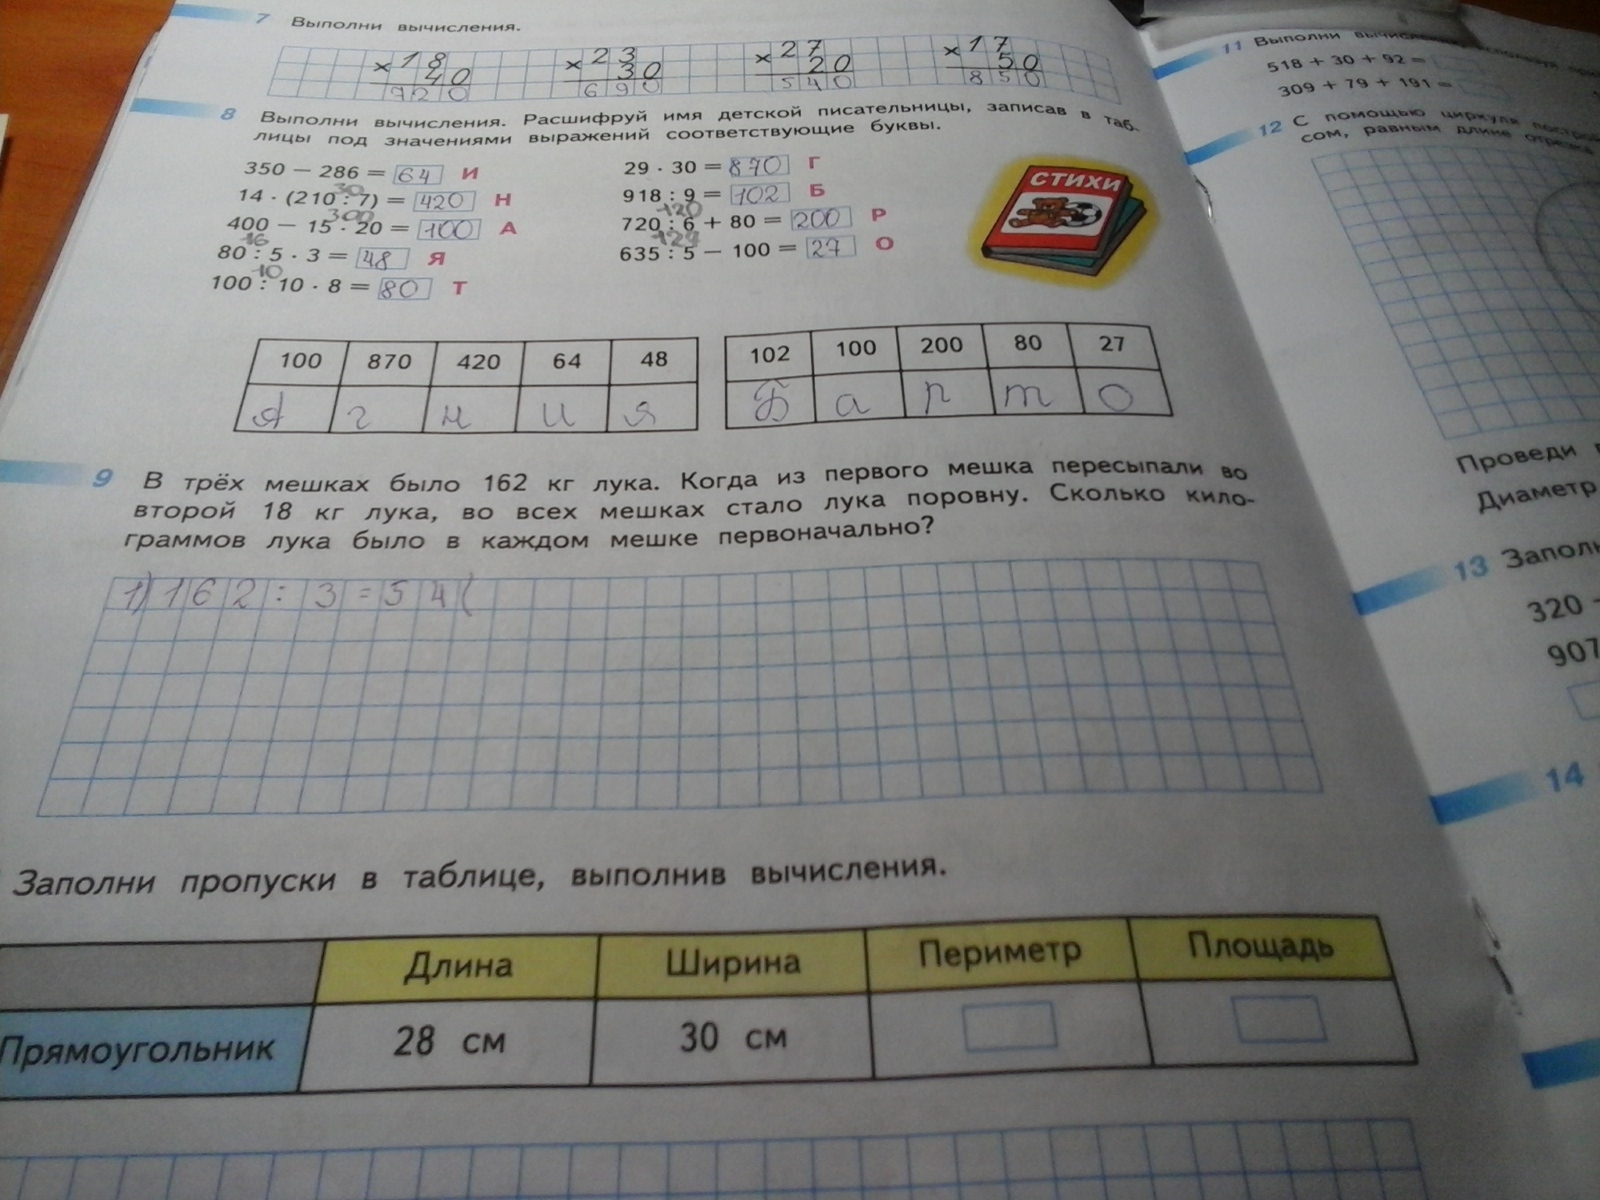 7 Выполни вычисления.
× 18
40
720
× 23
30
690
× 27
20
540
× 17
50
850
8 Выполни вычисления. Расшифруй имя детской писательницы, записав в таб-
лицы под значениями выражений соответствующие буквы.
350 − 286 = 64 И
30
14 · (210 : 7) = 420 Н
300
400 − 15 · 20 = 100 А
16
80 : 5 · 3 = 48 Я
10
100 : 10 · 8 = 80 Т
29 · 30 = 870 Г
918 : 9 = 102 Б
120
720 : 6 + 80 = 200 Р
127
635 : 5 − 100 = 27 О
СТИХИ
100 870 420 64 48
А г н и я
102 100 200 80 27
Б а р т о
9 В трёх мешках было 162 кг лука. Когда из первого мешка пересыпали во
второй 18 кг лука, во всех мешках стало лука поровну. Сколько кило-
граммов лука было в каждом мешке первоначально?
1) 162 : 3 = 54 (
Заполни пропуски в таблице, выполнив вычисления.
Длина Ширина Периметр Площадь
Прямоугольник 28 см 30 см
11 Выполни
518 + 30 + 92 =
309 + 79 + 191 =
12 С помощью циркуля
сом, равным длине отрезка
Проведи
Диаметр
13
320
907
14